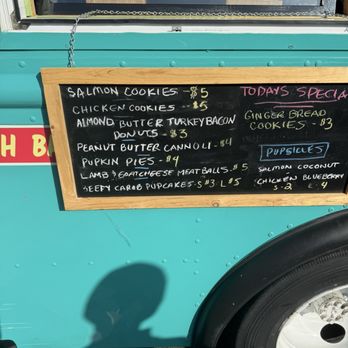 SALMON COOKIES - $5
CHICKEN COOKIES - $5
ALMOND BUTTER TURKEY BACON
DONUTS - $3
PEANUT BUTTER CANNOLI - $4
PUPKIN PIES - $4
LAMB & GOATCHEESE MEATBALLS - $5
BEEFY CAROB PUPCAKES - S $3 L $5
TODAYS SPECIA
GINGER BREAD
COOKIES - $3
PUPSICLES
SALMON COCONUT
CHICKEN BLUEBERRY
S - 2 L - 4
H B